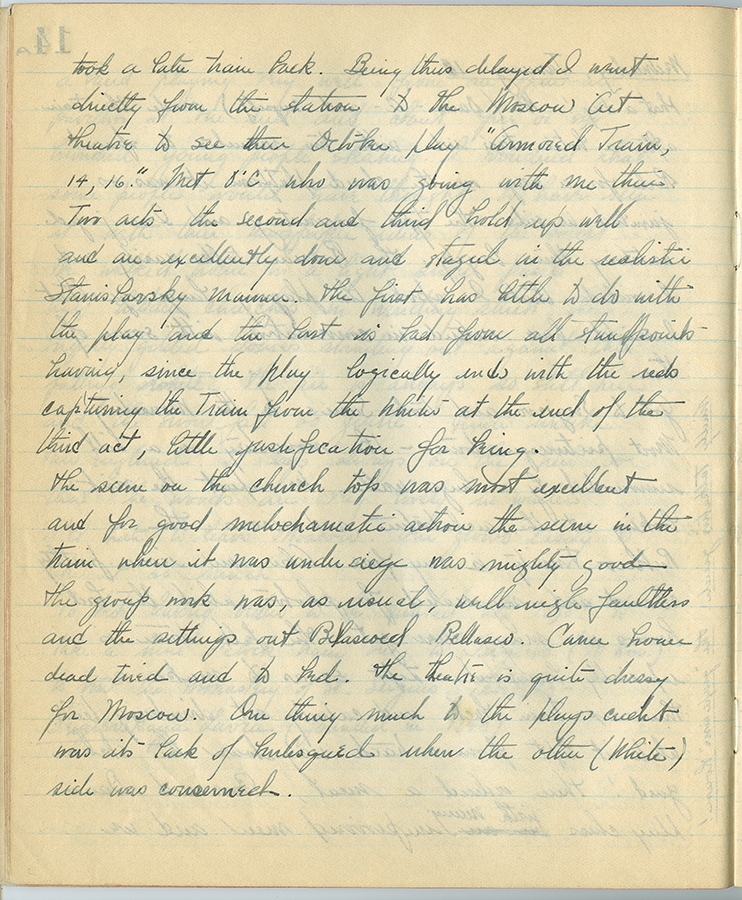 took a late train back. Being thus delayed I went
directly from the station to the Moscow Art
theatre to see their October play "Armored Train,
14, 16." Met O'C who was going with me there
Two acts the second and third hold up well
and are excellently done and staged in the realistic
Stanislavsky manner. The first has little to do with
the play and the last is bad from all standpoints
having, since the play logically ends with the reds
capturing the Train from the white at the end of the
third act, little justification for being.
The scene on the church tops was most excellent
and for good melodramatic action the scene in the
train when it was under siege was mighty good
The group work was, as usual, well nigh faultless
and the settings out Belascoed Bellasco. Came home
dead tired and to bed. The theatre is quite dressy
for Moscow. One thing much to the plays credit
was its lack of burlesqued when the other (White)
side was concerned.